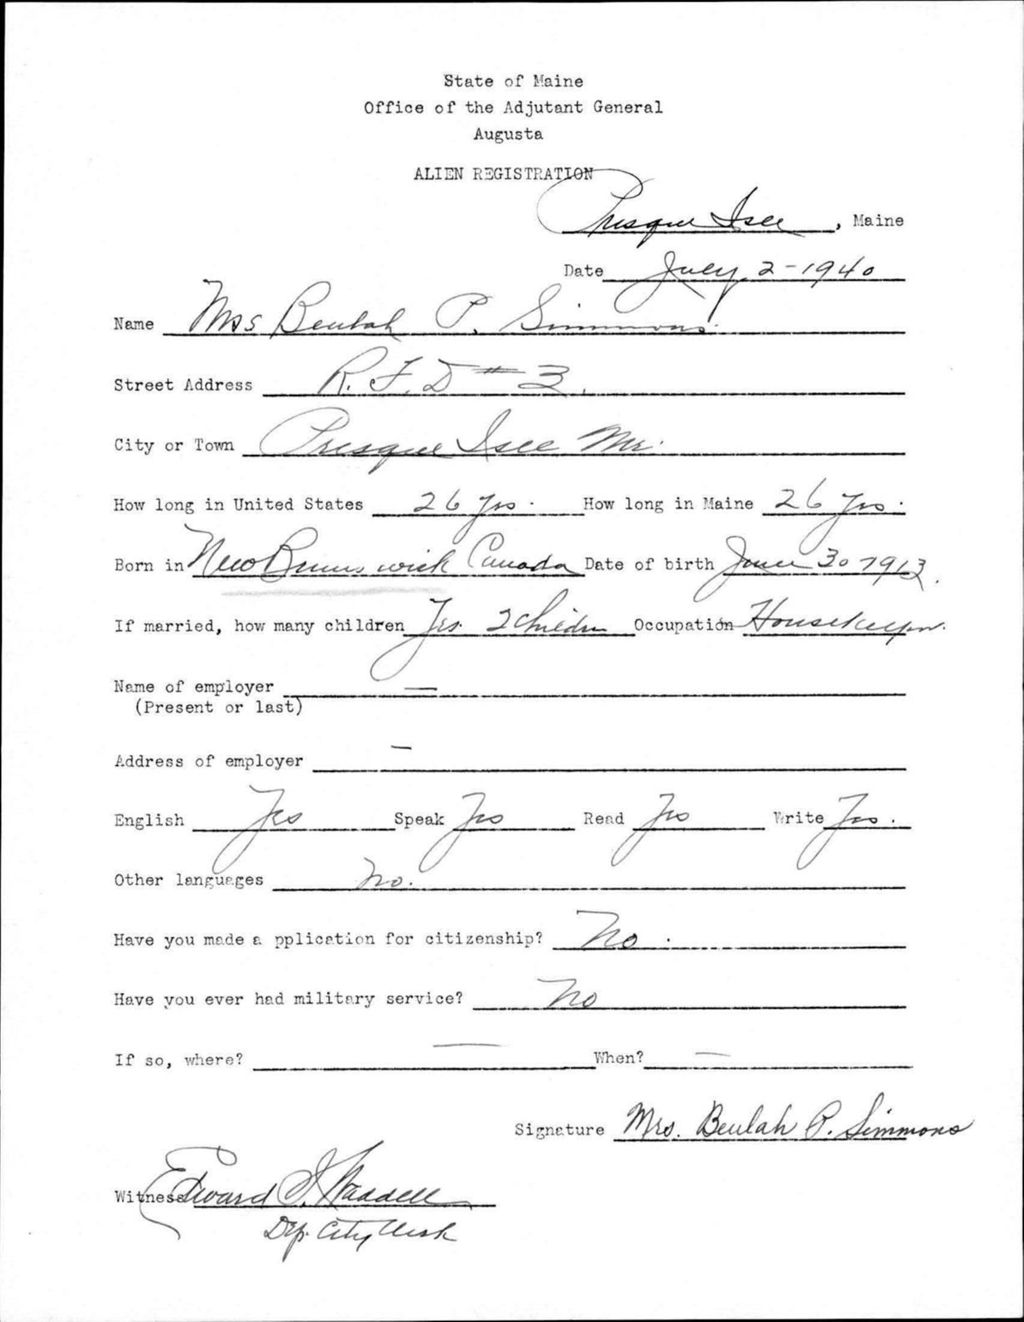 State of Maine
Office of the Adjutant General
Augusta
ALIEN REGISTRATION
Presque Isle, Maine
Date July 2-1940
Name Mrs Beulah P. Simmons.
Street Address R.F.D #3.
City or Town Presque Isle Me.
How long in United States 26 yrs. How long in Maine 26 yrs.
Born in New Brunswick Canada Date of birth June 30 1913.
If married, how many children Yes. 2 Children Occupation Housekeeper.
Name of employer —
(Present or last)
Address of employer —
English Yes Speak Yes Read Yes Write Yes.
Other languages no.
Have you made a pplication for citizenship? No.
Have you ever had military service? No
If so, where? — When? —
Signature Mrs. Beulah P. Simmons
Witness Edward I. Waddell
Dep. City Clerk